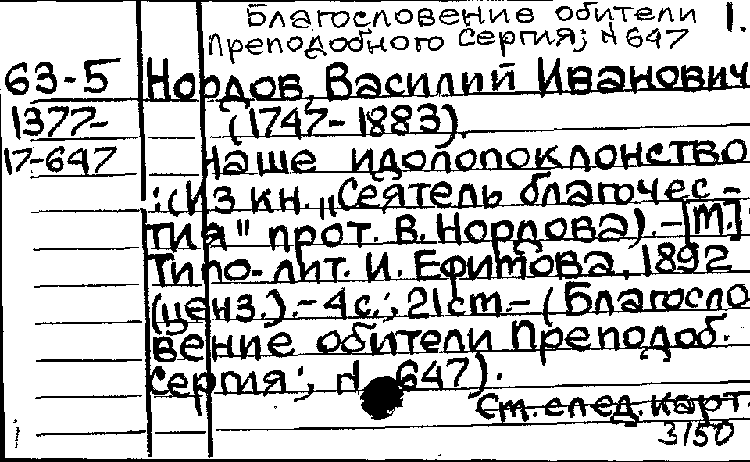 Благословение обители 1.
Преподобного Сергия; N 647
63-5 Нордов, Василий Иванович
1377- (1747-1883).
17-647 Наше идолопоклонство
:(Из кн. „Сеятель благочес-
тия" прот. В. Нордова).-[М.]
Типо-лит. И. Ефимова, 1892
(ценз.).-4с.; 21см.-(Благосло
вение обители Преподоб.
Сергия; N 647).
См. след. карт.
3150